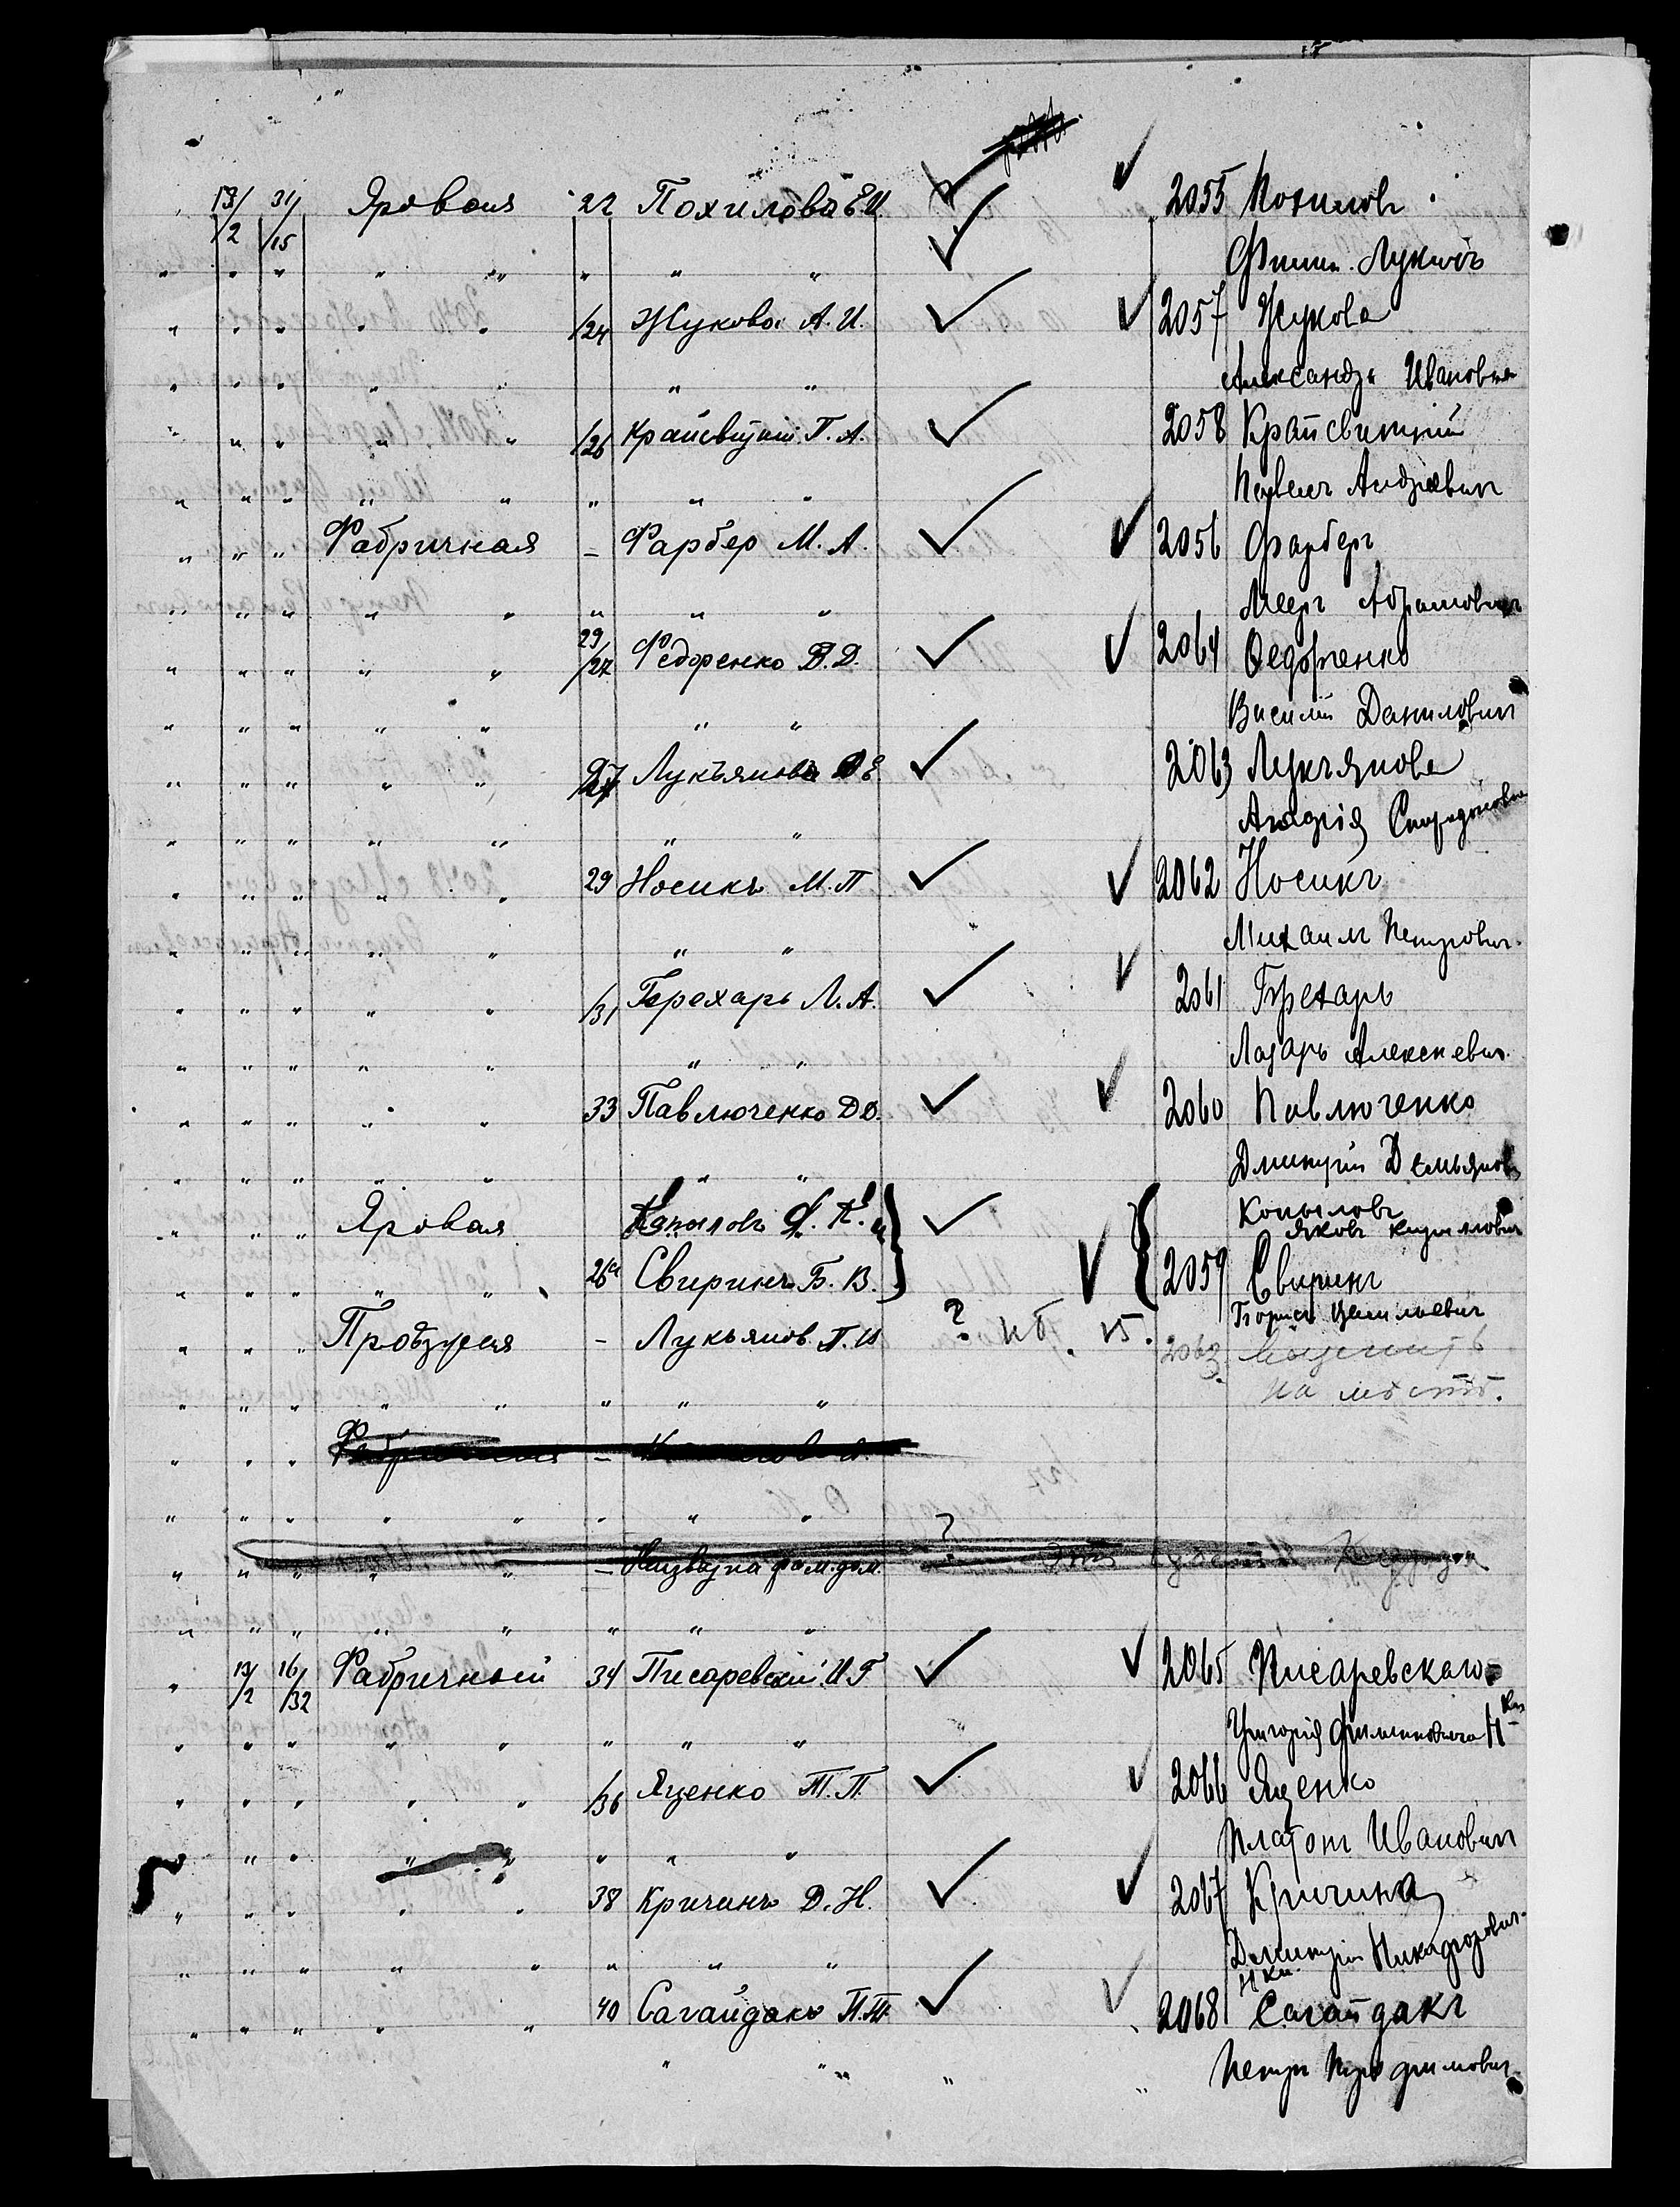 13/2 31/15 Яровая 22 Похилова Е.И. 2055 Похиловъ
" " " " " " " " Лукичъ
" " " " " /24 Жукова А.И. 2057 Жукова
" " " " " " Александра Ивановна
" " " " " /26 Крайсвитный П.А. 2058 Крайсвитный
" " " " " " " " Павелъ Андреевич
" " " Фабричная – Фарбер М.А. 2056 Фарберъ
" " " " " " " " Меер Абрамович
" " " " " 29/27 Федоренко В.Д. 2064 Федоренко
" " " " " " " Василій Данилович
" " " " " 27 Лукъянова Е 2063 Лукъянова
" " " " " " " Спиридоновна
" " " " " 29 Носикъ М.П 2062 Носикъ
" " " " " " " Михаилъ Петрович.
" " " " " /31 Брехарь Л.А. 2061 Брехарь
" " " " " " " Лазарь Алексеевич.
" " " " " 33 Павлюченко Д.Д. 2060 Павлюченко
" " " " " " " Дмитрій Демьянов
" " " Яровая Копыловъ Я.К. и Копыловъ Яковъ Кириллович
" " " " " 26а Свиринъ Б.В. 2059 Свиринъ
Борисъ
" " " – Лукьянов П.И ? 2063
" " " " " " " " на месте.
" " " –
" " " " " " " "
" " " " " – ?
" " " " " " " "
" 13/2 16/32 Фабричной 34 Писаревскій И.Г 2065 Писаревскаго
" " " " " " " " Григорія Филиповича Н-ки
" " " " " /36 Яценко П. 2066 Яценко
" " " " " " " Платонъ Иванович
" " " " " 38 Кричинъ Д.Н. 2067 Кричина
" " " " " " " " Дмитрія Никифорович. Н-ки
" " " " " 40 Сагайдакъ П.Т. 2068 Сагайдакъ
" " " " Петръ